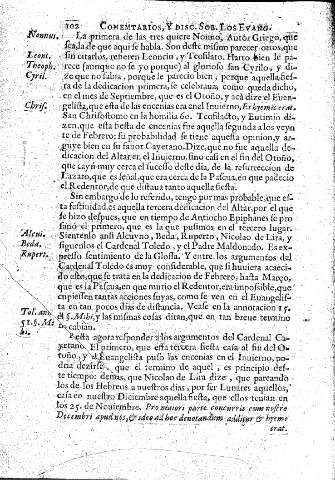 102 COMENTARIOS, Y DISC. SOB. LOS EVANG.
Nonnus.
La primera de las tres quiere Nonno, Autor Griego, que
sea, la de que aqui se habla. Son deste mismo parecer otros, que
Leont.
sin citarlos, refieren Leoncio, y Teofilato. Harto bien le pa-
Theoph.
rece (aunque no se yo porque) al glorioso san Cyrilo, y di-
Cyril.
ze que no sabia, porque le parecio bien, porque aquella fies-
ta de la dedicacion primera, se celebrava, como queda dicho,
en el mes de Septiembre, que es el Otoño, y acà dize el Euan-
Chrys.
gelista, que esta de las encenias era en el Inuierno, Et hyems erat.
San Chrisostomo en la homilia 60. Teofilacto, y Eutimio di-
zen, que esta fiesta de encenias fue aquella segunda a los veyn
te de Febrero: su probabilidad si tiene aquesta opinion, y ar-
guye bien en su fauor Cayetano. Dize, que no fue aquella de-
dicacion del Altar en el Inuierno, sino casi en el fin del Otoño,
que cayò muy cerca el sucesso deste dia, de la resurreccion de
Lazaro, que es señal, que era cerca de la Pascua, en que padecio
el Redentor, de que distaua tanto aquella fiesta.
Sin embargo de lo referido, tengo por mas probable, que es-
ta festiuidad es aquella tercera dedicacion del Altar, por el que
se hizo despues, que en tiempo de Antiocho Epiphanes se pro
fanò el primero, que es la que pusimos en el tercero lugar.
Alcui.
Sientenlo assi Alcuyno, Beda, Ruperto, Nicolao de Lira, y
Beda.
siguenlos el Cardenal Toledo, y el Padre Maldonado. Es ex-
Rupert.
presso sentimiento de la Glossa. Y entre los argumentos del
Cardenal Toledo es muy considerable, que si huuiera acaeci-
do esto, que se trata en la dedicacion de Febrero, hasta Março,
que es la Pascua, en que murio el Redentor, era impossible, que
cupiessen tantas acciones suyas, como se ven en el Euangelis-
Tol. ann.
ta en tan pocos dias de distancia. Vease en la annotacion 15.
y las mismas cosas dirán, que en tan breve termino
no cabian.
Resta agora responder a los argumentos del Cardenal Ca-
yetano. El primero, que esta tercera fiesta caìa al fin del Oto-
ño, y el Euangelista puso las encenias en el Inuierno, po-
dria dezirse, que el termino de aquel, es principio des-
te tiempo: demas, que Nicolao de Lira dize, que parteando
los de los Hebreos a nuestros dias, por ser Lunares aquellos,
caìa en nuestro Diciembre aquella fiesta, que ellos tenian en
los 25. de Nouiembre. Pro maiori parte concurris cum nostro
Decembri apud nos, & ideo ad hoc denotandum additur & hyems
erat.